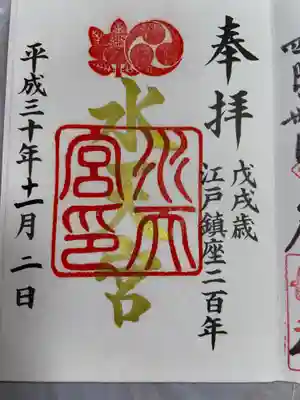 奉拝
戊戌歳
江戸鎮座二百年
水天宮
水天宮印
平成三十年十一月二日